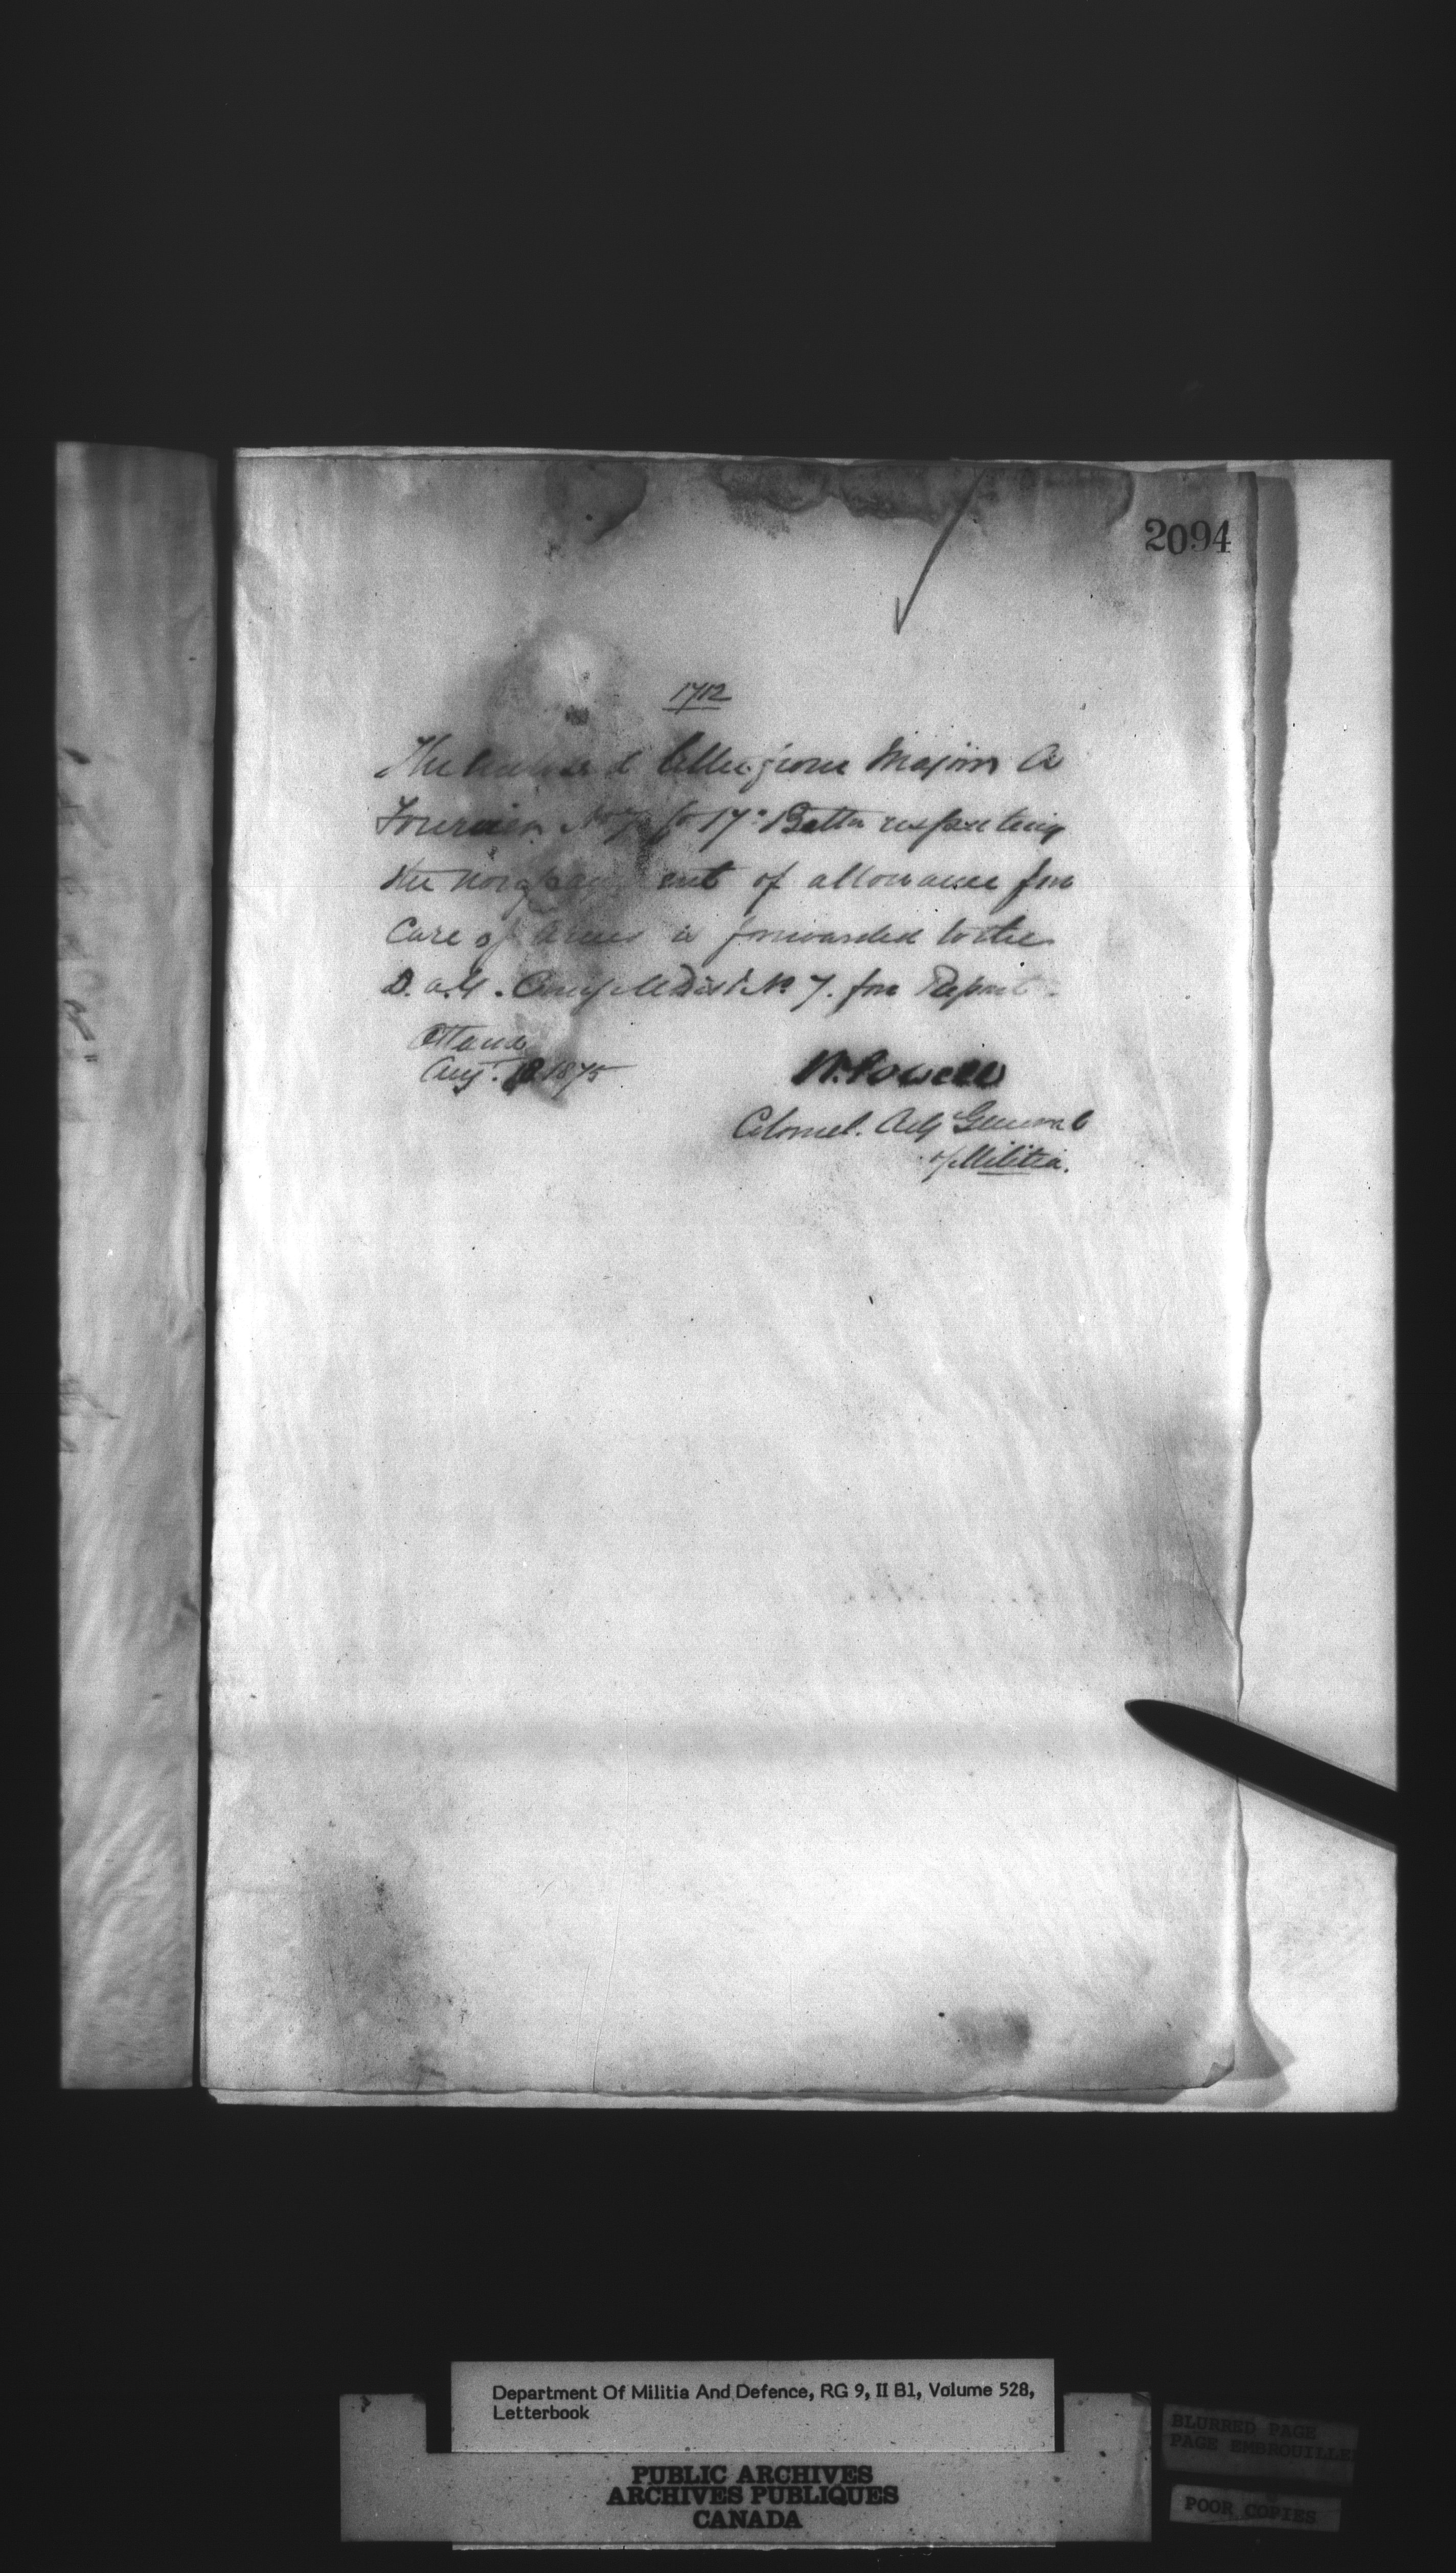 2094
1712
The enclosed letter from Major A
Fournier No 7 Co 17th Battn respecting
the non payment of allowance for
Care of Arms is forwarded to the
D.A.G. Comg M Dist No 7. for Report.
Ottawa
Aug. 18 1875
W. Powell
Colonel. Adj General
of Militia.
Department Of Militia And Defence, RG 9, II B1, Volume 528,
Letterbook
PUBLIC ARCHIVES
ARCHIVES PUBLIQUES
CANADA
BLURRED PAGE
PAGE EMBROUILLE
POOR COPIES